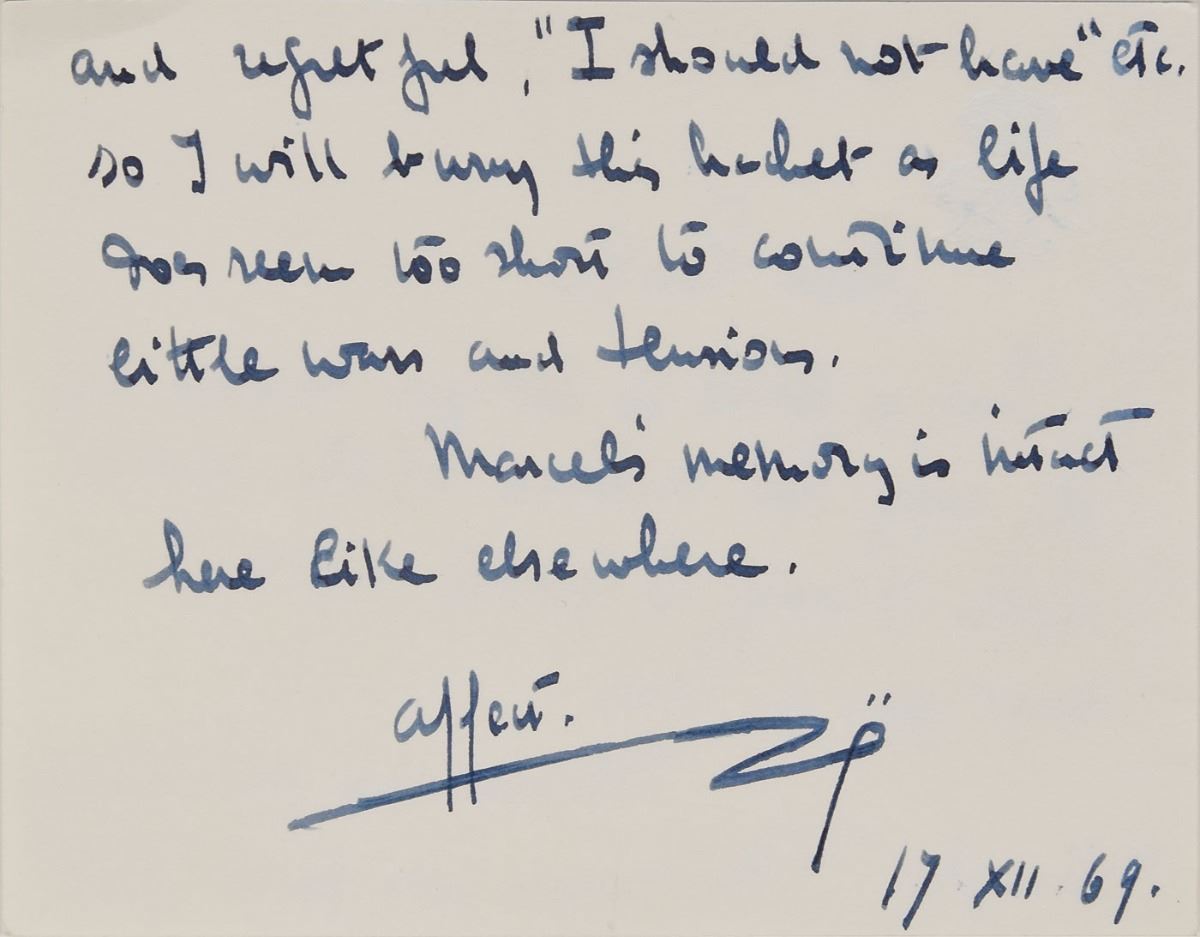 and regretful, "I should not have" etc.
so I will bury this hachet as life
does seem too short to continue
little wars and tensions.
Marcel's memory is intact
here like elsewhere.
affect.
17 XII. 69.